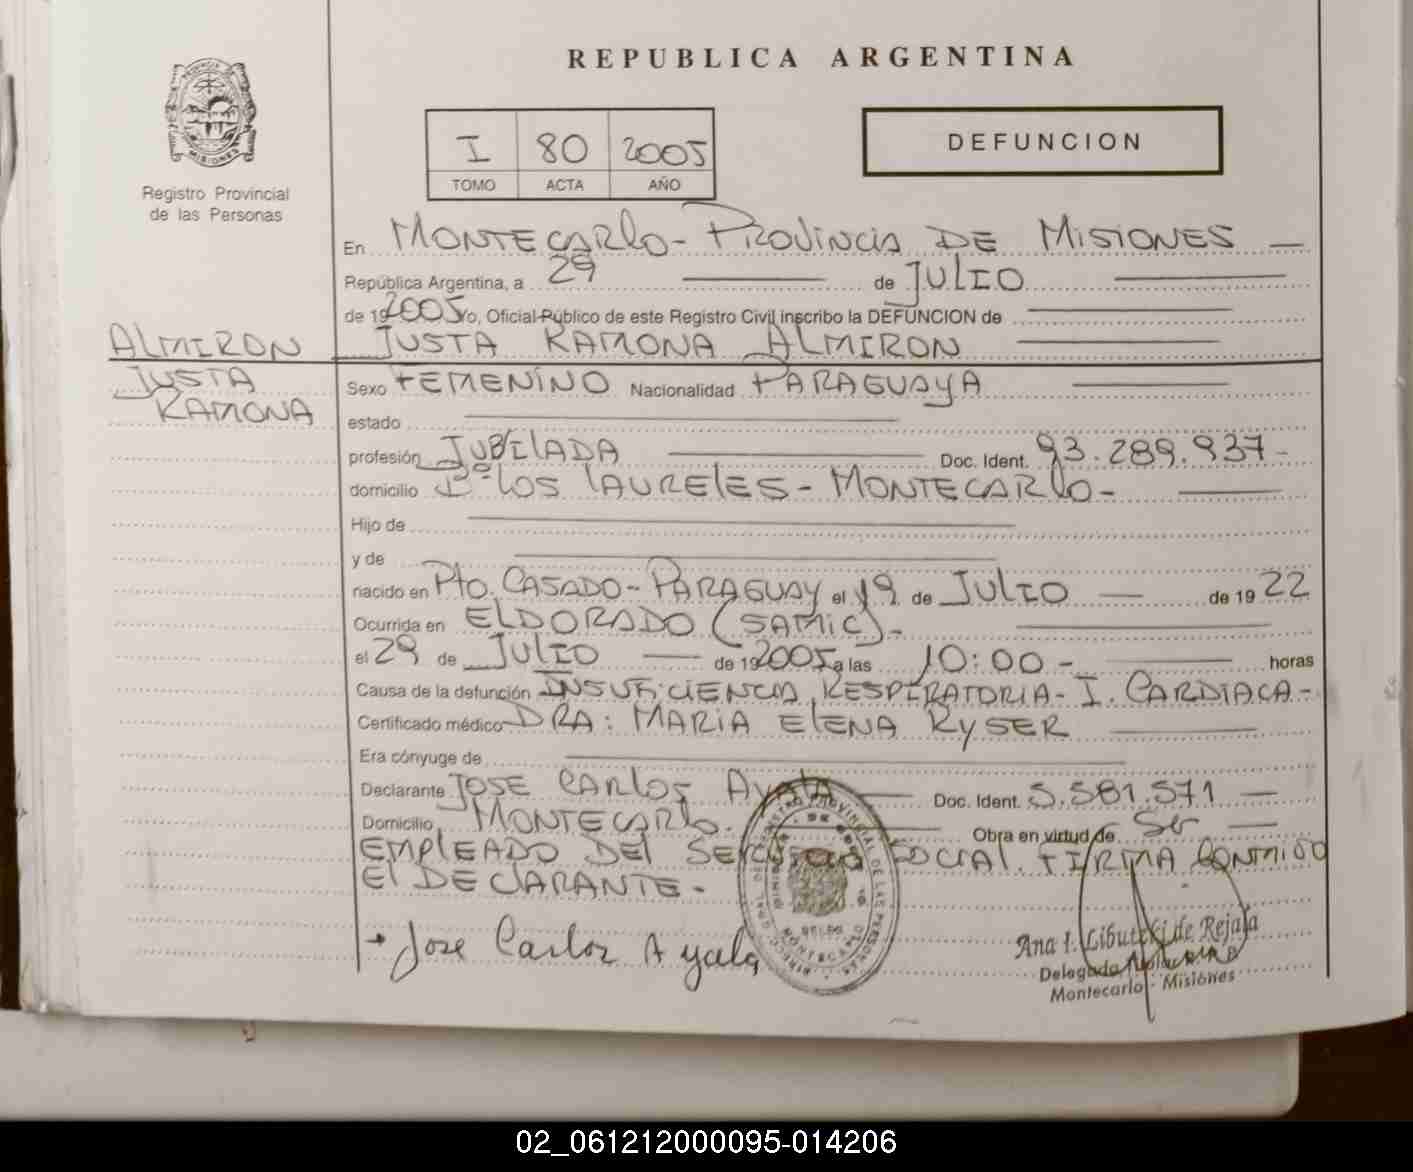 REPUBLICA ARGENTINA
PROVINCIA DE
MISIONES
Registro Provincial
de las Personas
I 80 2005
TOMO ACTA AÑO
DEFUNCION
En MONTECARLO - PROVINCIA DE MISIONES —
República Argentina, a 29 — de JULIO —
de 19 2005 Yo, Oficial Público de este Registro Civil inscribo la DEFUNCION de —
JUSTA RAMONA ALMIRON —
ALMIRON
JUSTA
RAMONA
Sexo FEMENINO Nacionalidad PARAGUAYA —
estado —
profesión JUBILADA — Doc. Ident. 93.289.937-
domicilio Bº LOS LAURELES - MONTECARLO - —
Hijo de —
y de —
nacido en Pto. CASADO - PARAGUAY el 19 de JULIO — de 19 22
Ocurrida en ELDORADO (SAMIC). —
el 29 de JULIO — de 19 2005 a las 10:00 - — horas
Causa de la defunción INSUFICIENCIA RESPIRATORIA - I. CARDIACA -
Certificado médico DRA: MARIA ELENA RYSER —
Era cónyuge de —
Declarante JOSE CARLOS AYALA — Doc. Ident. 5.581.571 —
Domicilio MONTECARLO. — Obra en virtud de Ser —
EMPLEADO DEL SERVICIO SOCIAL. FIRMA CONMIGO
El DECLARANTE.
Jose Carlos Ayala
REGISTRO PROVINCIAL DE LAS PERSONAS
Ana I. Libutzki de Rejala
Delegada
Montecarlo - Misiones
02_061212000095-014206